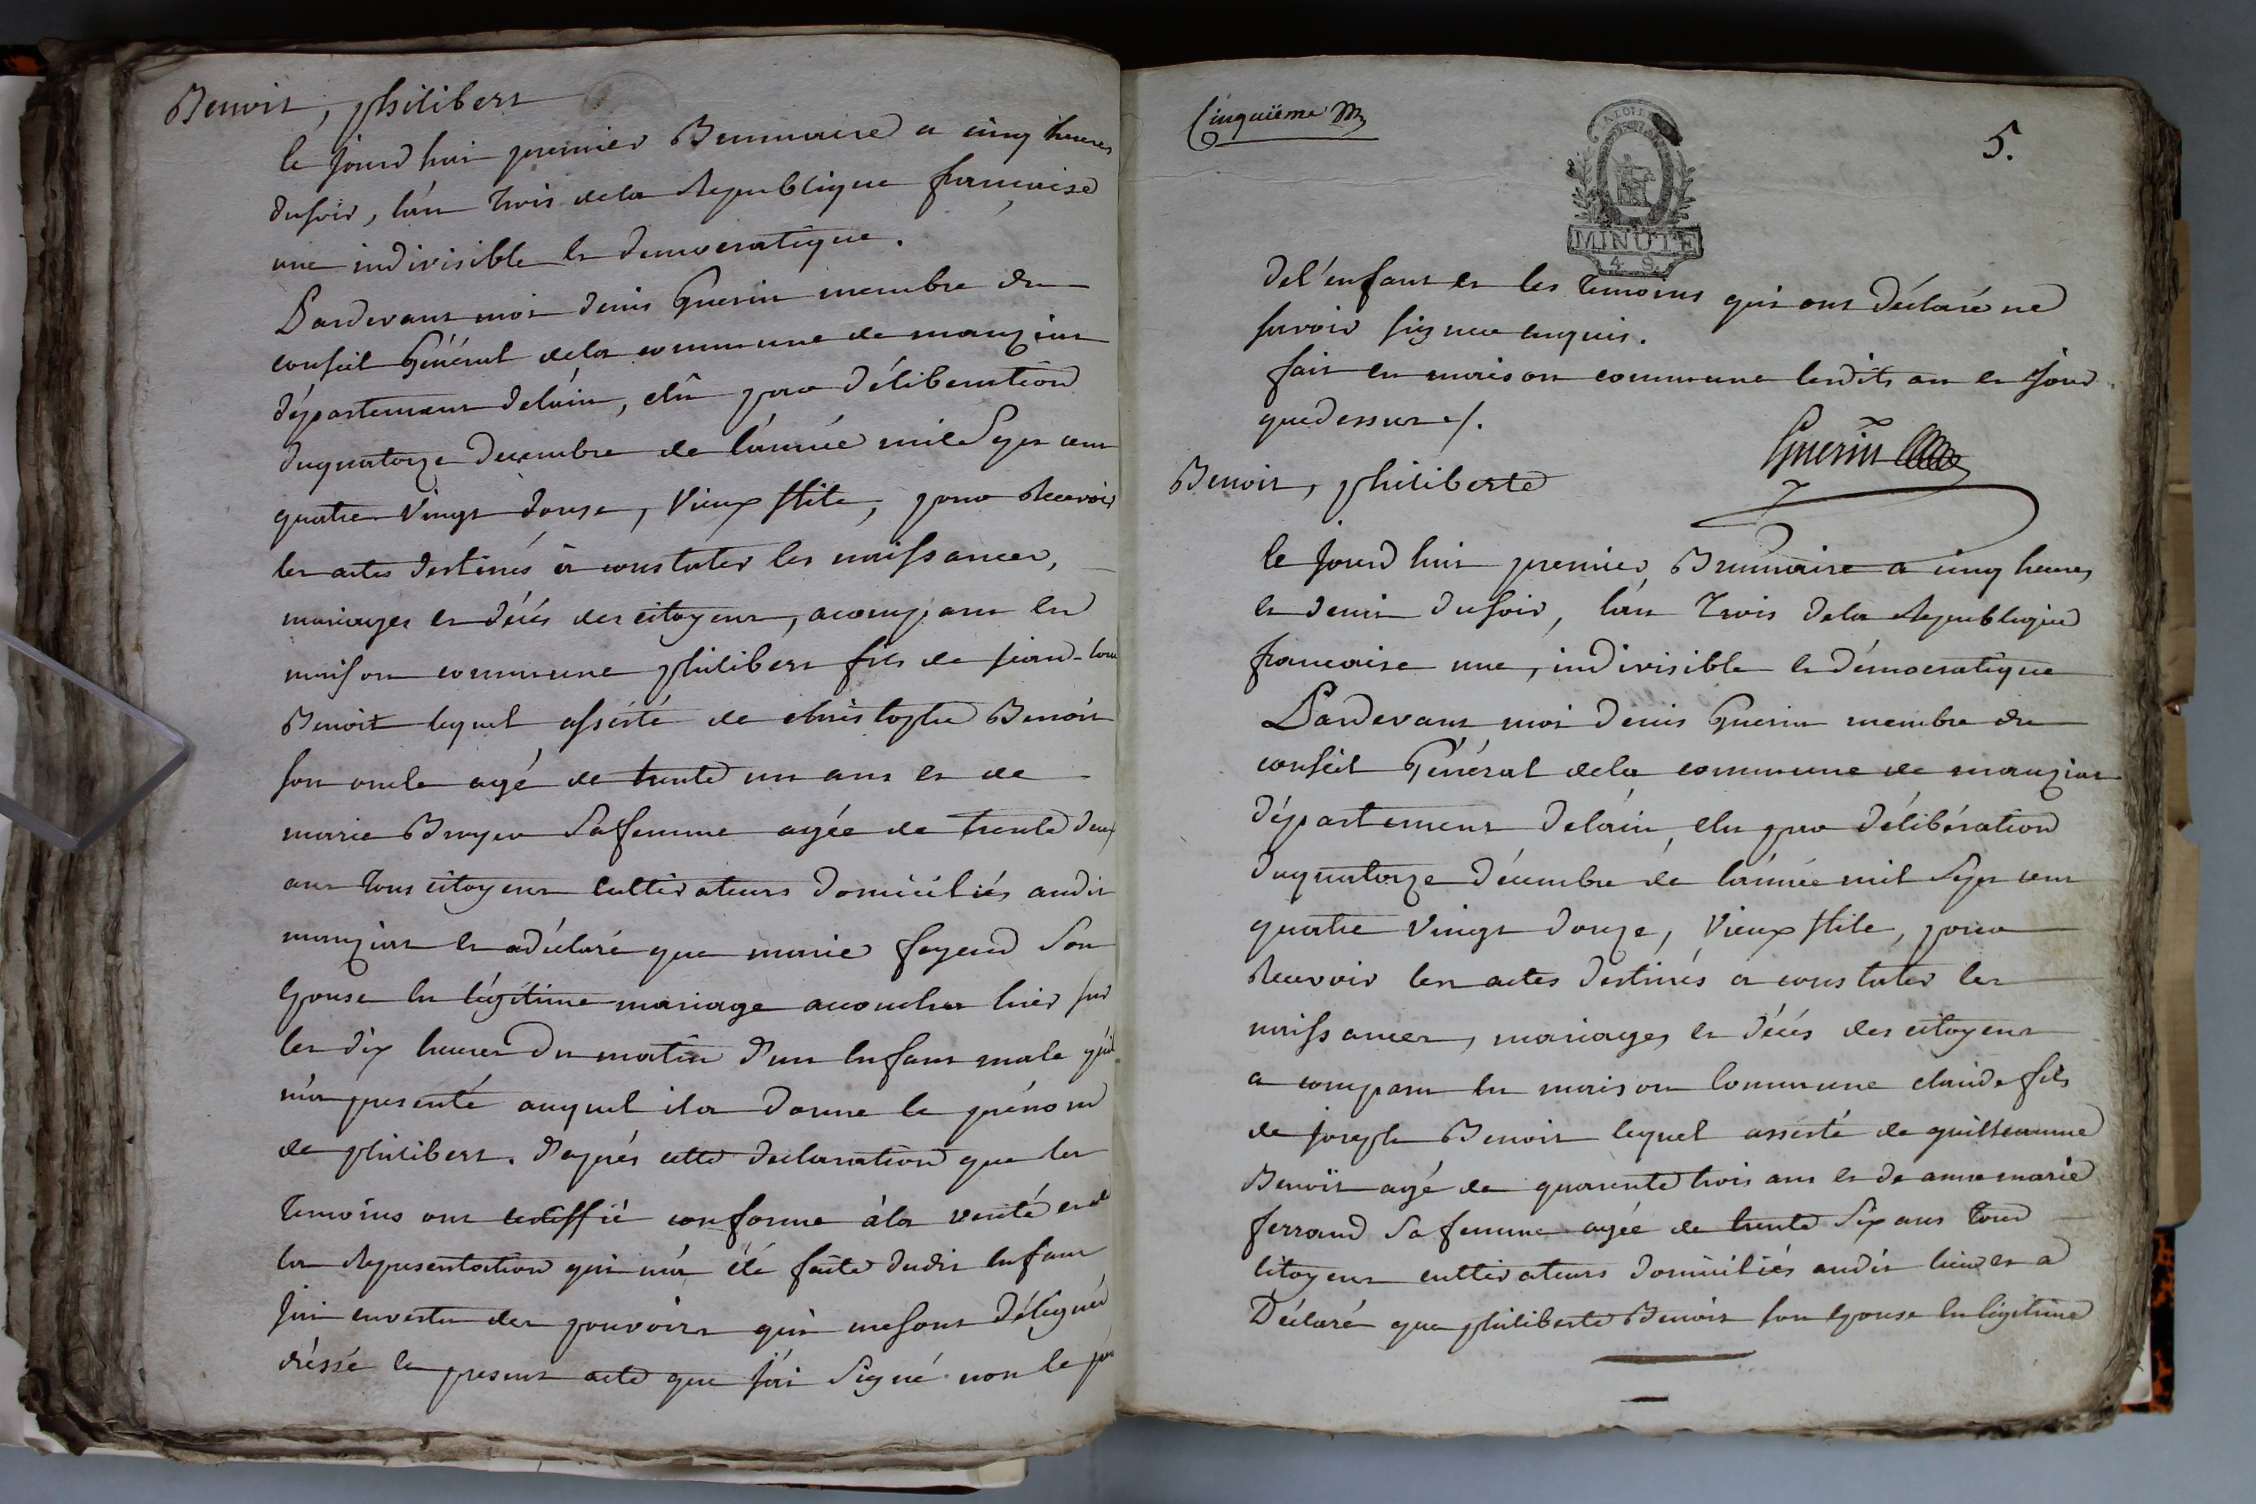 Benoit, philibert
le jourd'hui premier Brumaire a cinq heures
du soir, l'an trois de la Republique française
une indivisible et democratique.
Pardevant moi denis Guerin membre du
conseil Général de la commune de manziat
département de l'ain, élû pour déliberation
du quatorze decembre de l'année mil Sept cent
quatre vingt douze, vieux stile, pour Recevoir
les actes destinés à constater les naissances,
mariages et décés des citoyens, a comparu en
maison commune philibert fils de jean-
Benoit lequel assisté de christophe Benoit
son oncle agé de trente un ans et de
marie Broyer Sa femme agée de trente deux
ans tous citoyens cultivateurs domiciliés audit
manziat et a déclaré que marie fayend Son
Epouse en légitime mariage accoucha hier sur
les dix heures du matin d'un Enfant male qu'il
m'a presenté auquel il a donné le prénom
de philibert. D'aprés cette declaration que les
témoins ont certiffié conforme à la verité et de
la Representation qui m'a été faite dudit Enfant
j'ai en vertu des pouvoirs qui me sont délegués
dréssé le present acte que j'ai Signé non le
Cinquième
5.
MINUTE
4 S.
de l'enfant et les témoins qui ont déclaré ne
savoir signer enquis.
fait en maison commune lesdits an et jour
que dessus /.
Guerin
Benoit, philiberte
le jourd'hui premier Brumaire a cinq heures
et demi du soir, l'an trois de la Republique
francaise une, indivisible et démocratique
Pardevant moi denis Guerin membre du
conseil Général de la commune de manziat
département de l'ain, elu par délibération
du quatorze décembre de l'année mil Sept cent
quatre vingt douze, vieux stile, pour
Recevoir les actes destinés a constater les
naissances, mariages et décés des citoyens
a comparu en maison Commune claude fils
de joseph Benoit lequel assisté de guillaume
Benoit agé de quarente trois ans et de anne marie
ferrand Sa femme agée de trente Six ans tous
Citoyens cultivateurs domiciliés audit lieu et a
Déclaré que philiberte Benoit son Epouse en légitime